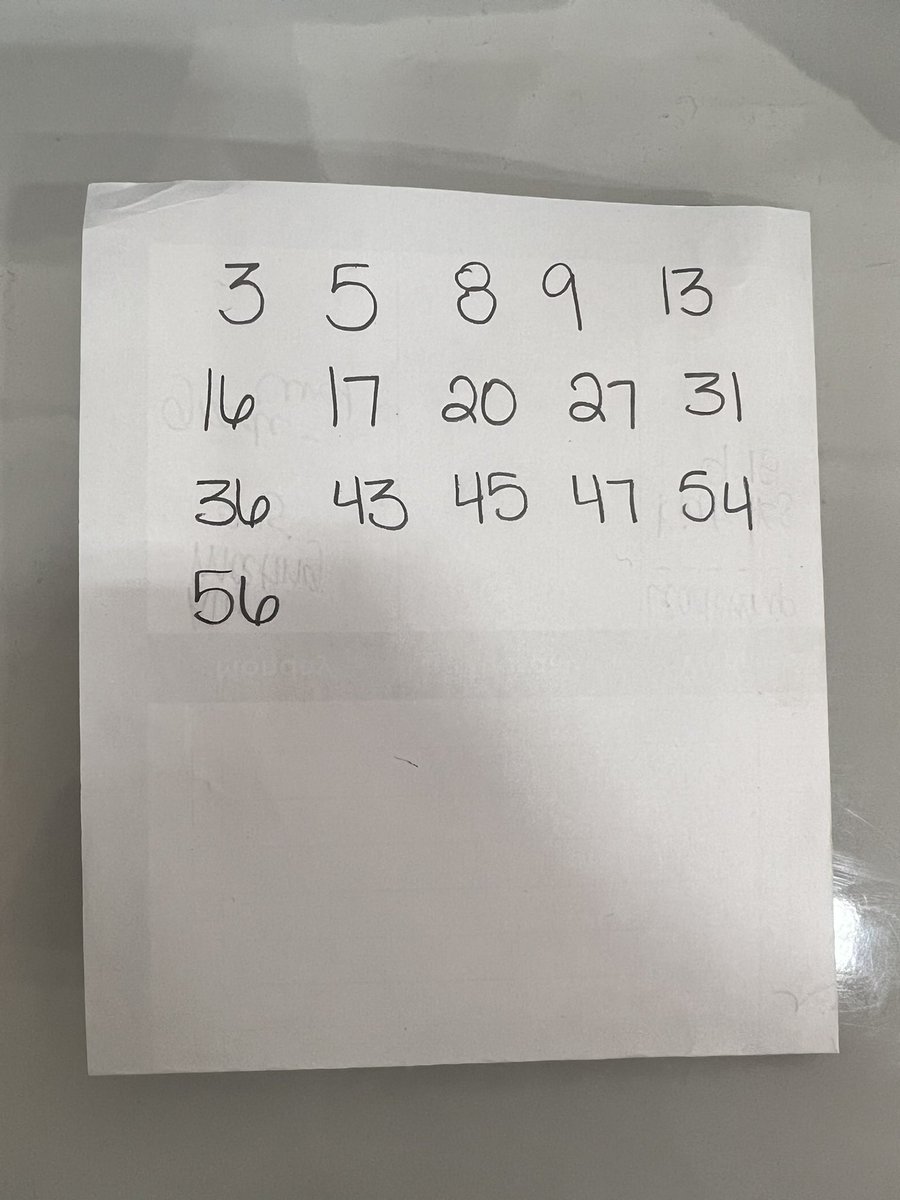 3 5 8 9 13
16 17 20 27 31
36 43 45 47 54
56
Monday